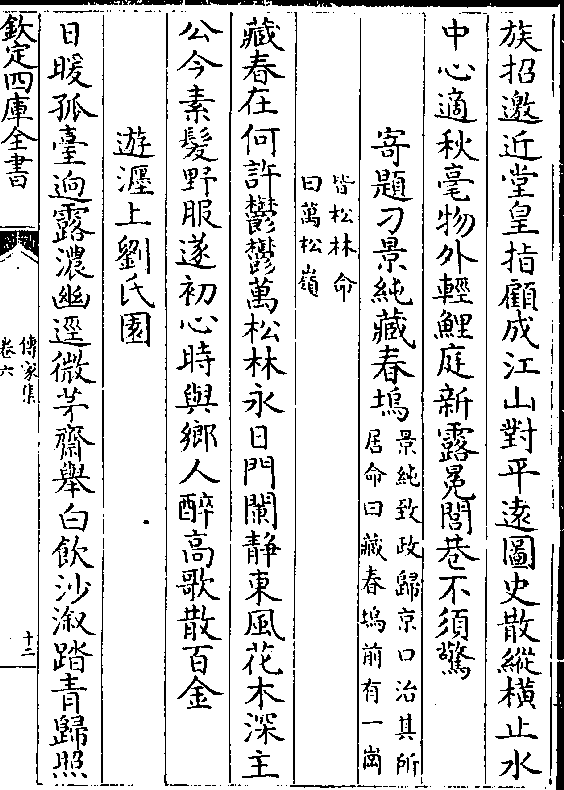 族招邀近堂皇指顧成江山對平逺圖史散縱横止水
中心適秋毫物外輕鯉庭新露冕閭巷不須驚
寄題刁景純藏春塢景純致政歸京口治其所
居命曰藏春塢前有一崗
皆松林命
曰萬松嶺
藏春在何許鬱鬱萬松林永日門闌静東風花木深主
公今素髮野服遂初心時與鄉人醉高歌散百金
遊瀍上劉氏園
日暖孤臺迥露濃幽逕微茅齋舉白飲沙溆踏青歸照
欽定四庫全書
傳家集
卷六
十二